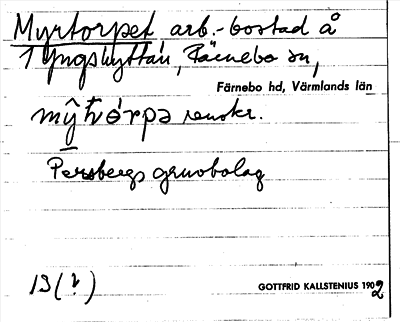 Myrtorpet arb.-bostad å
1 Yngshyttan, Färnebo sn,
Färnebo hd, Värmlands län
renskr.
Persbergs gruvbolag
19(?)
GOTTFRID KALLSTENIUS 1902